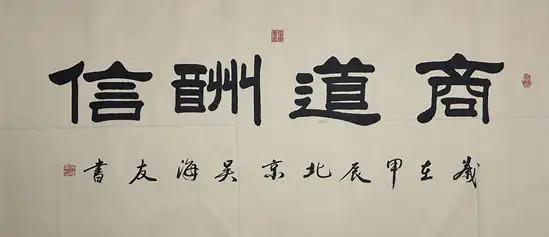 商道酬信
岁在甲辰北京吴海友书